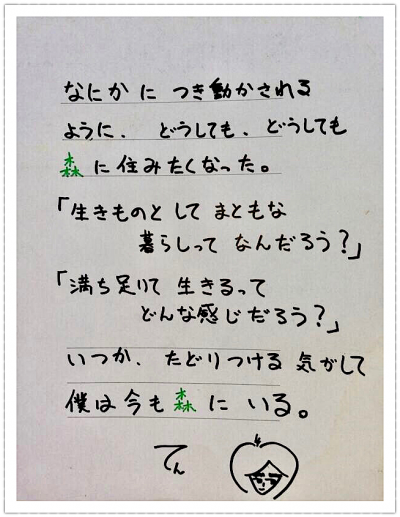 なにか に つき動かされる
ように、どうしても、どうしても
森に住みたくなった。
「生きものと して まともな
暮らしって なんだろう?」
「満ち足りて 生きるって
どんな感じだろう?」
いつか、たどりつける 気がして
僕は今も森に いる。
てん